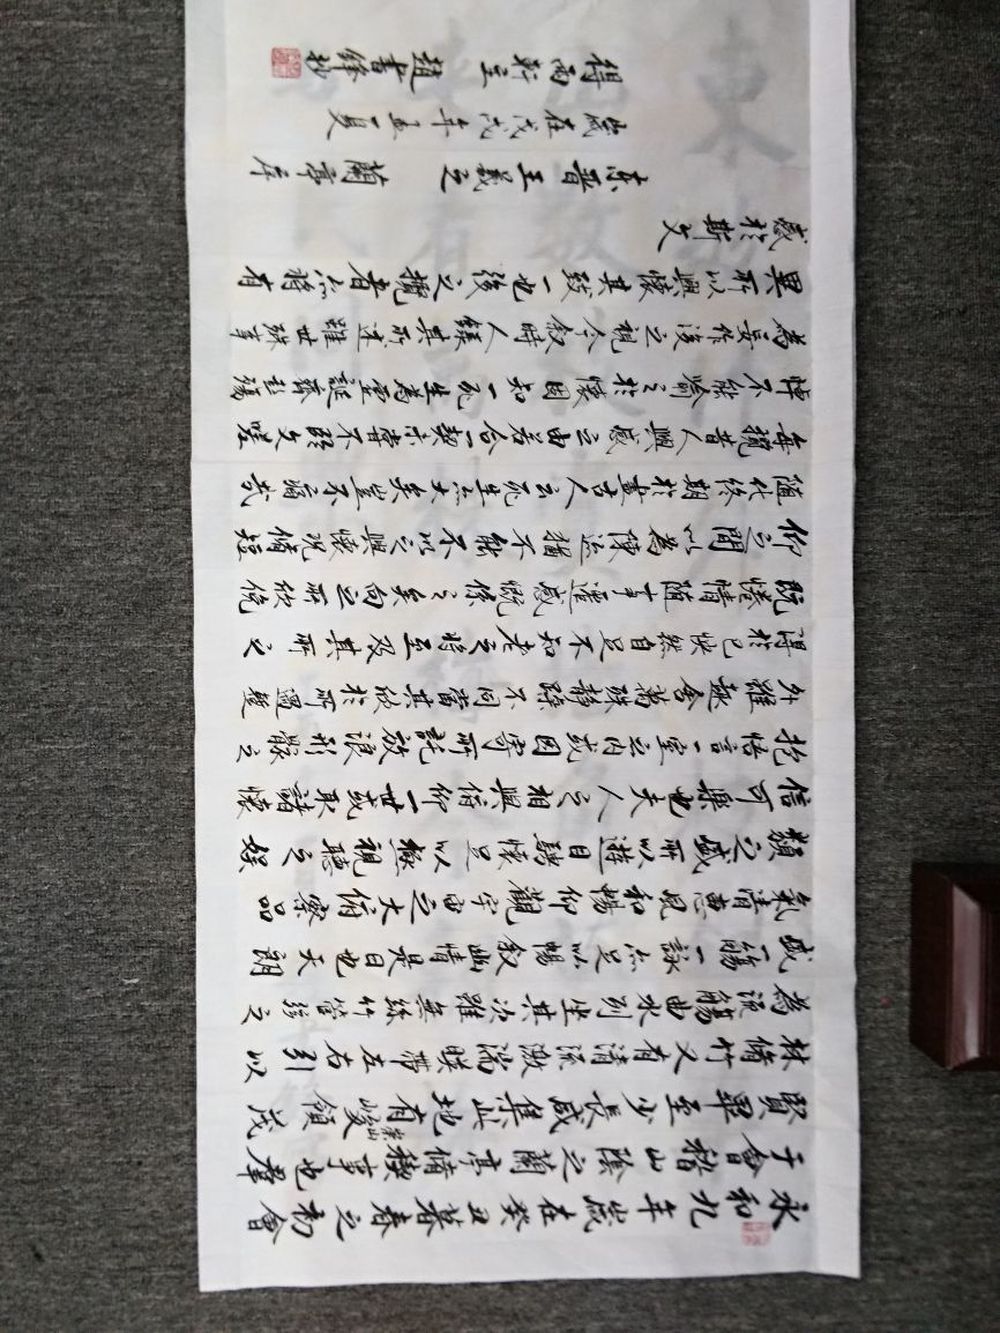 永和九年歲在癸丑暮春之初會
于會稽山陰之蘭亭脩禊事也羣
賢畢至少長咸集此地有崇山峻領茂
林脩竹又有清流激湍暎帶左右引以
為流觴曲水列坐其次雖無絲竹管弦之
盛一觴一詠亦足以暢敘幽情是日也天朗
氣清惠風和暢仰觀宇宙之大俯察品
類之盛所以遊目騁懷足以極視聽之娛
信可樂也夫人之相與俯仰一世或取諸懷
抱悟言一室之內或因寄所託放浪形骸之
外雖趣舍萬殊靜躁不同當其欣於所遇暫
得於己快然自足不知老之將至及其所之
既惓情隨事遷感慨係之矣向之所欣俛
仰之間以為陳迹猶不能不以之興懷況脩短
隨化終期於盡古人云死生亦大矣豈不痛哉
每攬昔人興感之由若合一契未嘗不臨文嗟
悼不能喻之於懷固知一死生為虛誕齊彭殤
為妄作後之視今叙時人錄其所述雖世殊事
異所以興懷其致一也後之攬者亦將有
感於斯文
東晉王羲之 蘭亭序
歲在戊戌年孟夏
得雨軒主 趙書